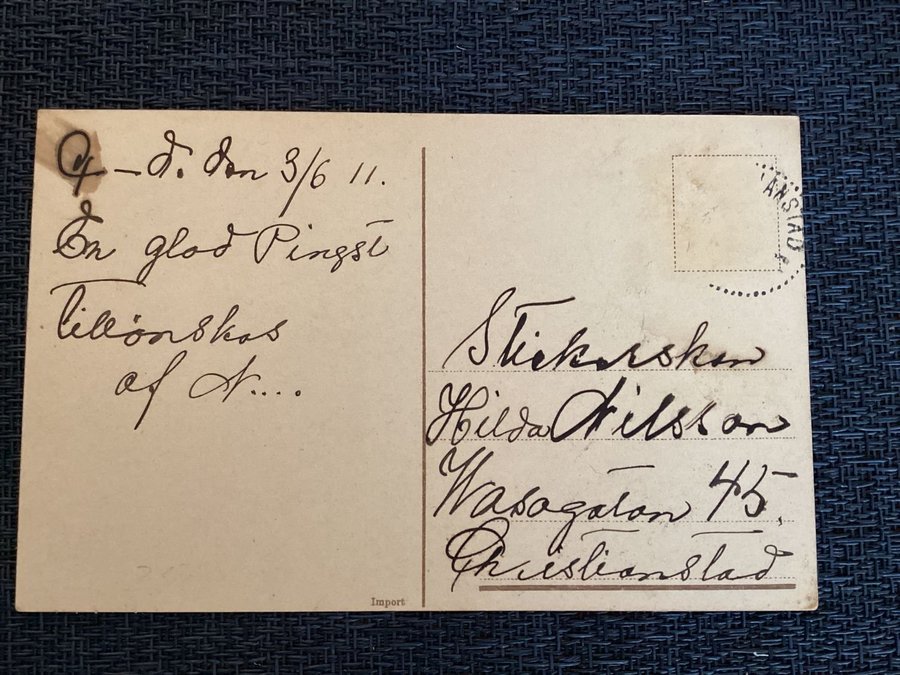 Ö–d. den 3/6 11.
En glad Pingst
tillönskas
af N....
Import
ANSTAD
Stickerskan
Hilda Nilsson
Wasagatan 45.
Christianstad